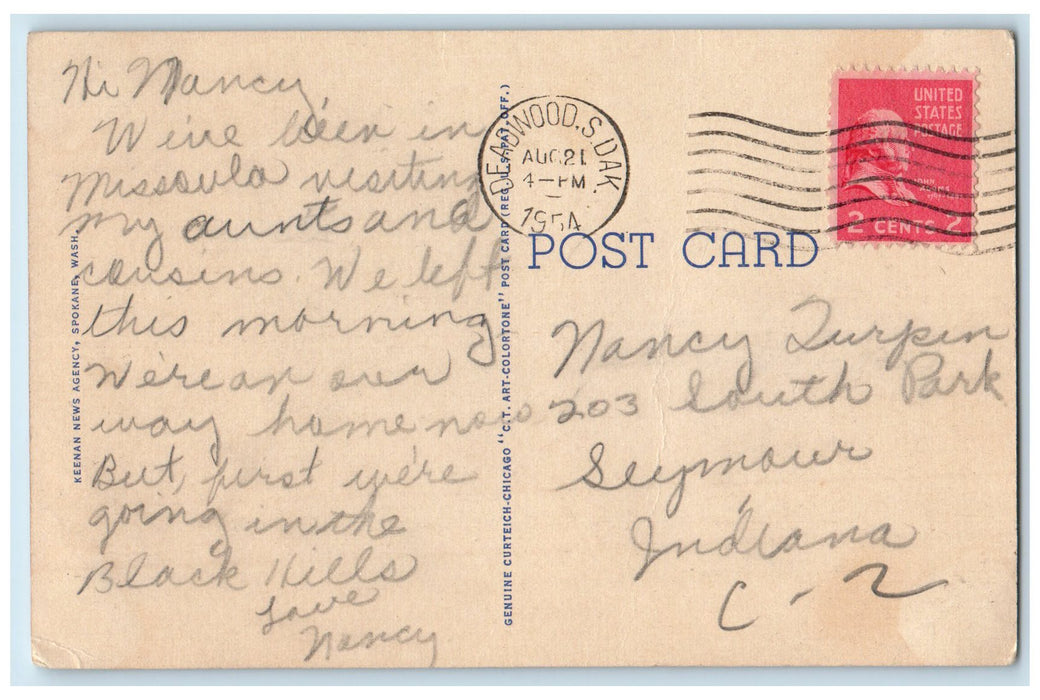 Hi Nancy,
We've been in
Missoula visiting
my aunts and
cousins. We left
this morning
We're on our
way home now
But, first we're
going in the
Black Hills
Love
Nancy
KEENAN NEWS AGENCY, SPOKANE, WASH.
GENUINE CURTEICH-CHICAGO "C.T. ART-COLORTONE" POST CARD (REG. U.S. PAT. OFF.)
DEADWOOD, S. DAK.
AUG 21
4-PM
1954
UNITED
STATES
POSTAGE
JOHN
ADAMS
2 CENTS 2
POST CARD
Nancy Turpin
203 South Park
Seymour
Indiana
C-2